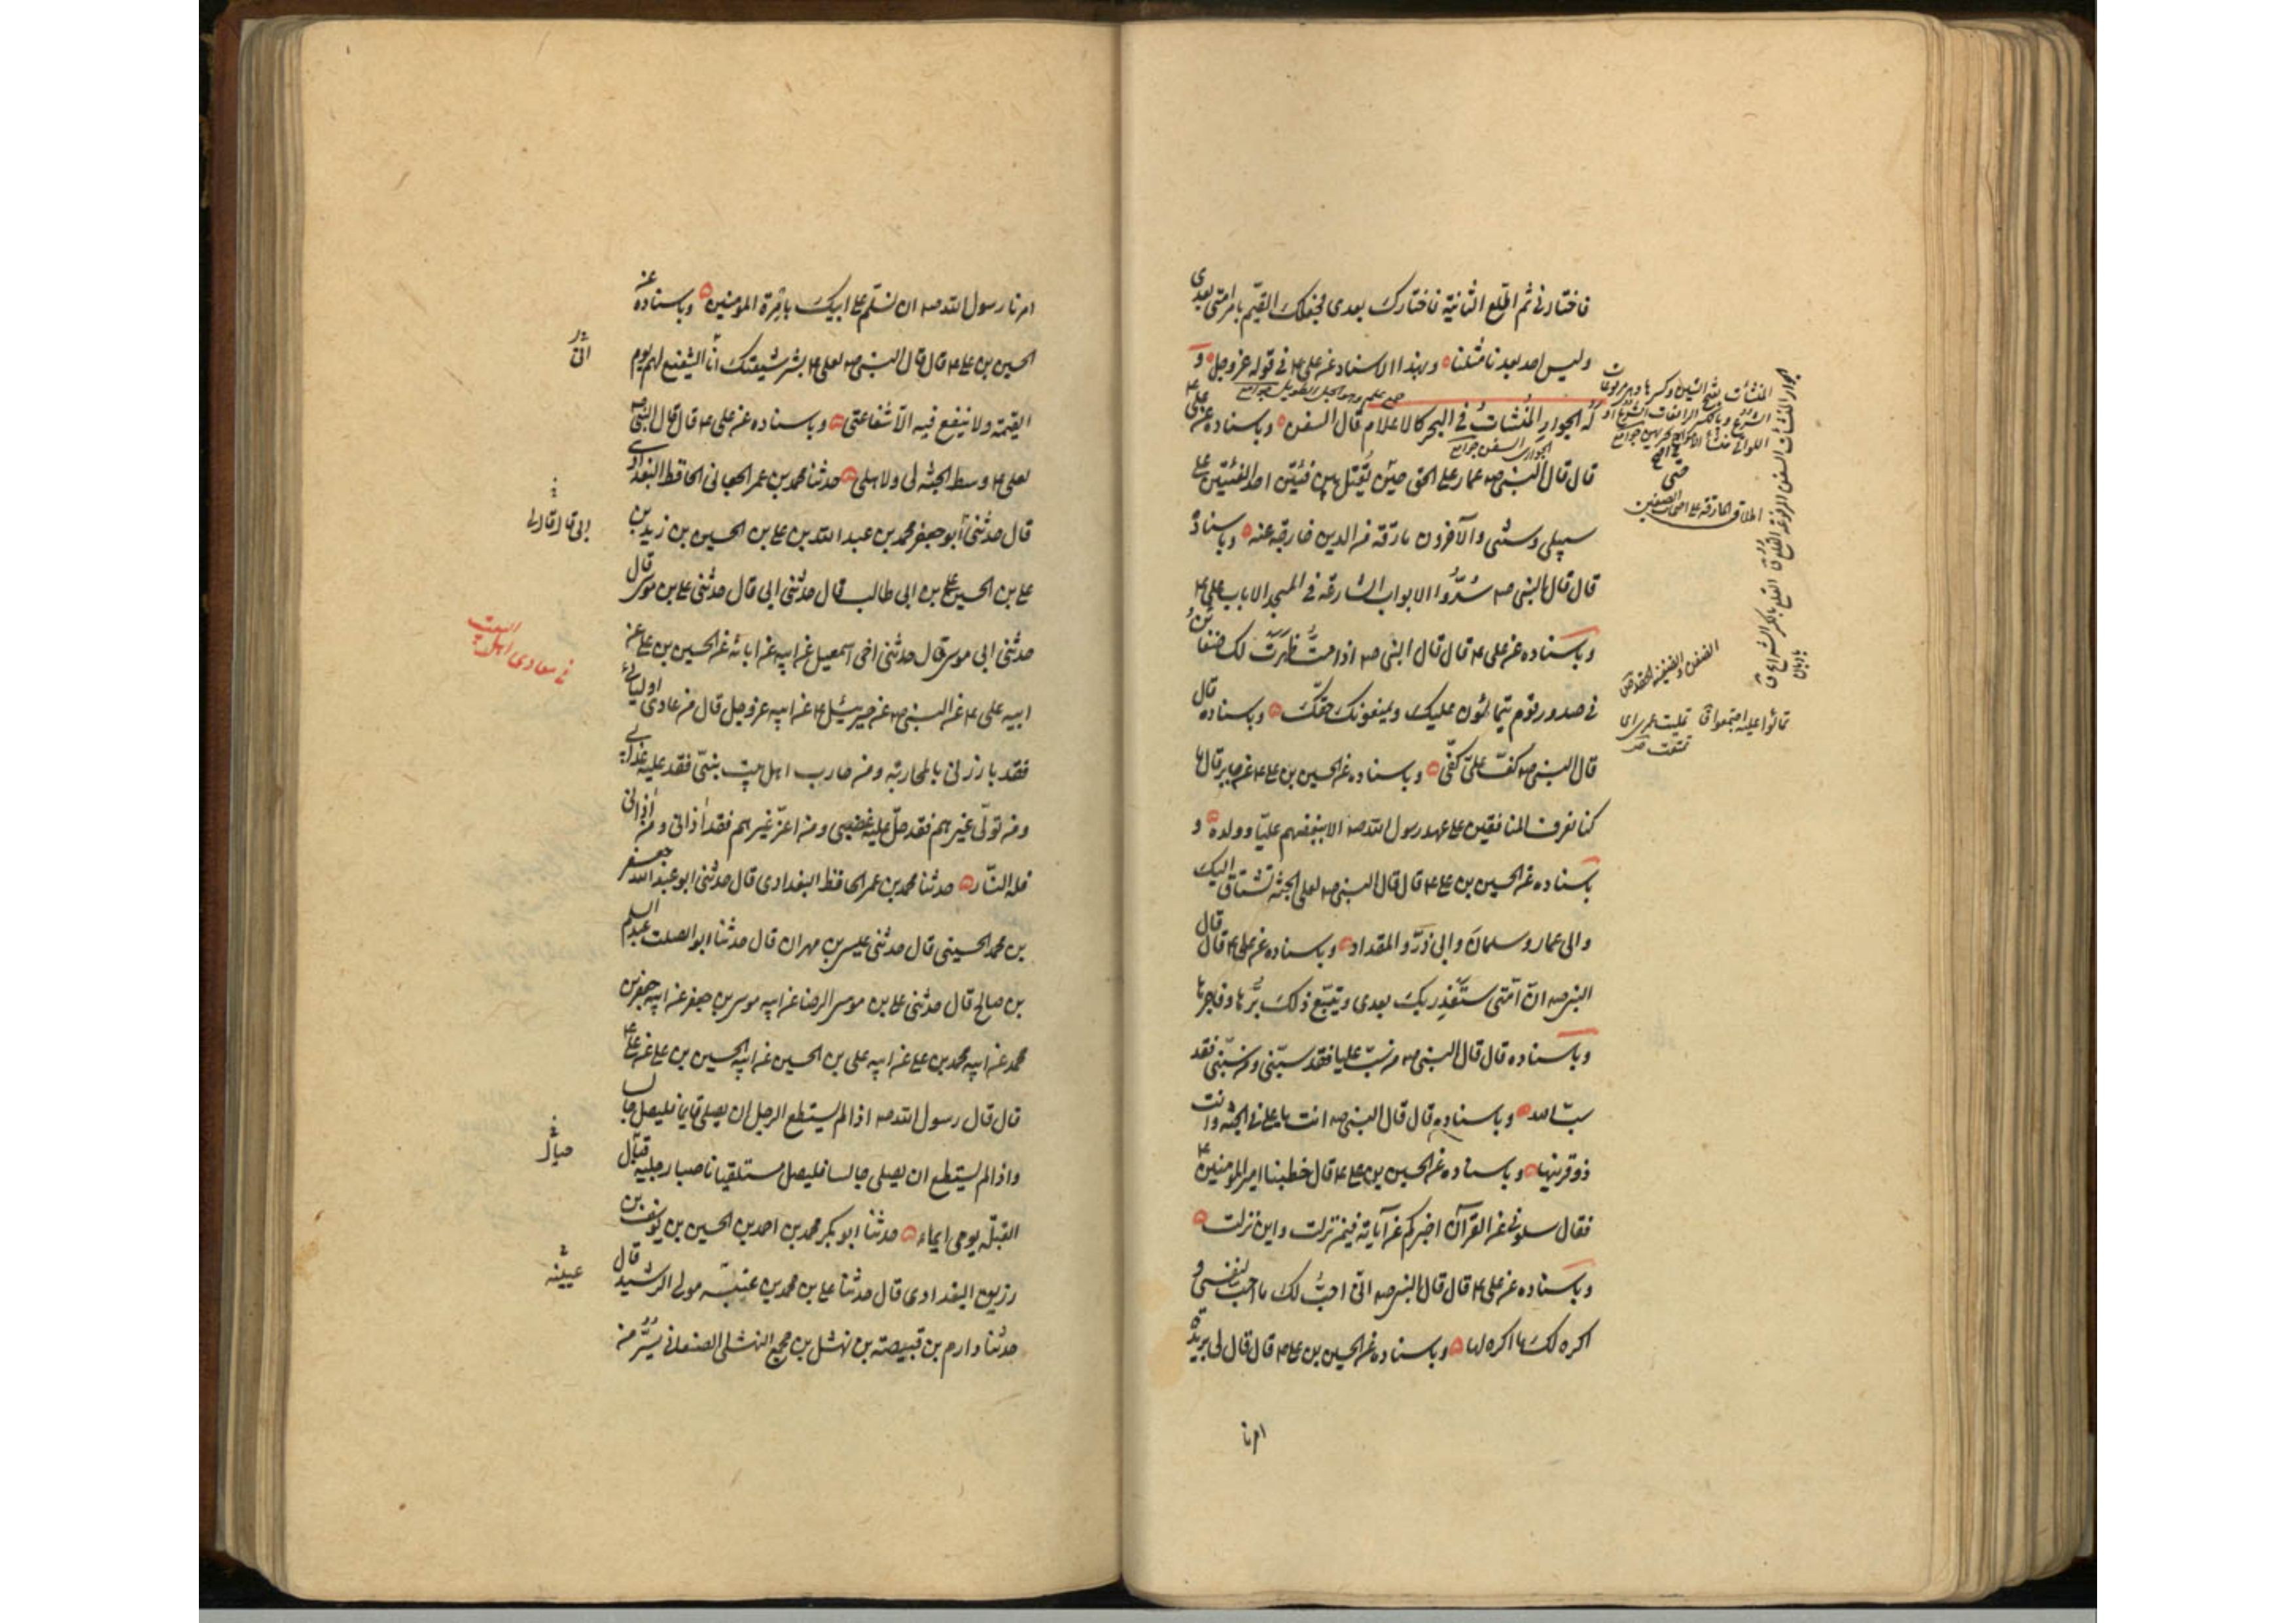 فاختارني ثم اطّلع الثانية فاختارك بعدي فجعلك القيّم بامر امتي بعدي
وليس احد بعدنا مثلنا وبهذا الاسناد عن علي ع في قوله عز وجل و
له الجوار المنشآت في البحر كالاعلام قال السفن وباسناده عن علي ع
قال قال النبي ص عمار على الحق حين يُقتل بين فئتين احد الفئتين على
سبيلي وسنتي والآخرون مارقة من الدين خارجة عنه وباسناده
قال قال النبي ص سُدّوا الابواب الشارعة في المسجد الا باب علي ع
وباسناده عن علي ع قال قال النبي ص اذا متُّ ظهرَت لك ضغائن
في صدور قوم يتمالئون عليك ويمنعونك حقّك وباسناده قال
قال النبي ص كفّ عليّ كفّي وباسناده عن الحسين بن علي ع عن جابر قال ما
كنا نعرف المنافقين على عهد رسول الله ص الا ببغضهم عليّا وولده و
باسناده عن الحسين بن علي ع قال قال النبي ص لعلي الجنة تشتاق اليك
والى عمار وسلمان وابي ذرّ والمقداد وباسناده عن علي ع قال قال
النبي ص انّ امّتي ستغدر بك بعدي ويتبع ذلك برّها وفاجرها
وباسناده قال قال النبي ص من سبّ عليا فقد سبّني ومن سبّني فقد
سبّ الله وباسناده قال قال النبي ص انت يا علي في الجنة وانت
ذو قرنيها وباسناده عن الحسين بن علي ع قال خطبنا امير المؤمنين ع
فقال سلوني عن القرآن اخبركم عن آياته فيمن نزلت واين نزلت
وباسناده عن علي ع قال قال النبي ص انّي احبُّ لك ما احب لنفسي و
اكره لك ما اكره لها وباسناده عن الحسين بن علي ع قال قال لي بريدة
امرنا
المنشآت بفتح الشين وكسرها
اطلاق المارقة على اصحاب الصفين
الضغن والضغينة الحقد ق
تمالئوا عليه اجتمعوا ق
امرنا رسول الله ص ان نسلّم على ابيك بامرة المؤمنين وباسناده عن
الحسين بن علي ع قال قال النبي ص لعلي ع بشّر شيعتك انا الشفيع لهم يوم
القيمة ولا ينفع فيه الا شفاعتي وباسناده عن علي ع قال قال النبي ص
لعلي ع وسط الجنة لي ولاهلي حدثنا محمد بن عمر الجعابي الحافظ البغدادي
قال حدثني أبو جعفر محمد بن عبد الله بن علي بن الحسين بن زيد بن
علي بن الحسين بن علي بن ابي طالب قال حدثني ابي قال حدثني علي بن موسى قال
حدثني ابي موسى قال حدثني اخي اسمعيل عن ابيه عن ابائه عن الحسين بن علي عن
ابيه علي ع عن النبي ص عن جبرئيل ع عن الله عز وجل قال من عادى اوليائي
فقد بارزني بالمحاربة ومن حارب اهل بيت نبيّي فقد حل عليه عذابي
ومن تولّى غيرهم فقد حلّ عليه غضبي ومن اعزّ غيرهم فقد اذاني ومن اذاني
فله النار حدثنا محمد بن عمر الحافظ البغدادي قال حدثني ابو عبد الله جعفر
بن محمد الحسيني قال حدثني عيسى بن مهران قال حدثنا ابو الصلت عبد السلم
بن صالح قال حدثني علي بن موسى الرضا عن ابيه موسى بن جعفر عن ابيه جعفر بن
محمد عن ابيه محمد بن علي عن ابيه علي بن الحسين عن ابيه الحسين بن علي عن علي ع
قال قال رسول الله ص اذا لم يستطع الرجل ان يصلي قايما فليصل جالسا
واذا لم يستطع ان يصلي جالسا فليصل مستلقيا ناصبا رجليه قبال
القبلة يومي ايماء حدثنا ابو بكر محمد بن احمد بن الحسين بن يوسف بن
رزيق البغدادي قال حدثنا علي بن محمد بن عنبسة مولى الرشيد قال
حدثنا دارم بن قبيصة بن نهشل بن مجمع النهشلي الصنعاني بسر من
اني
في معادي اهل البيت
حيال
عيينه